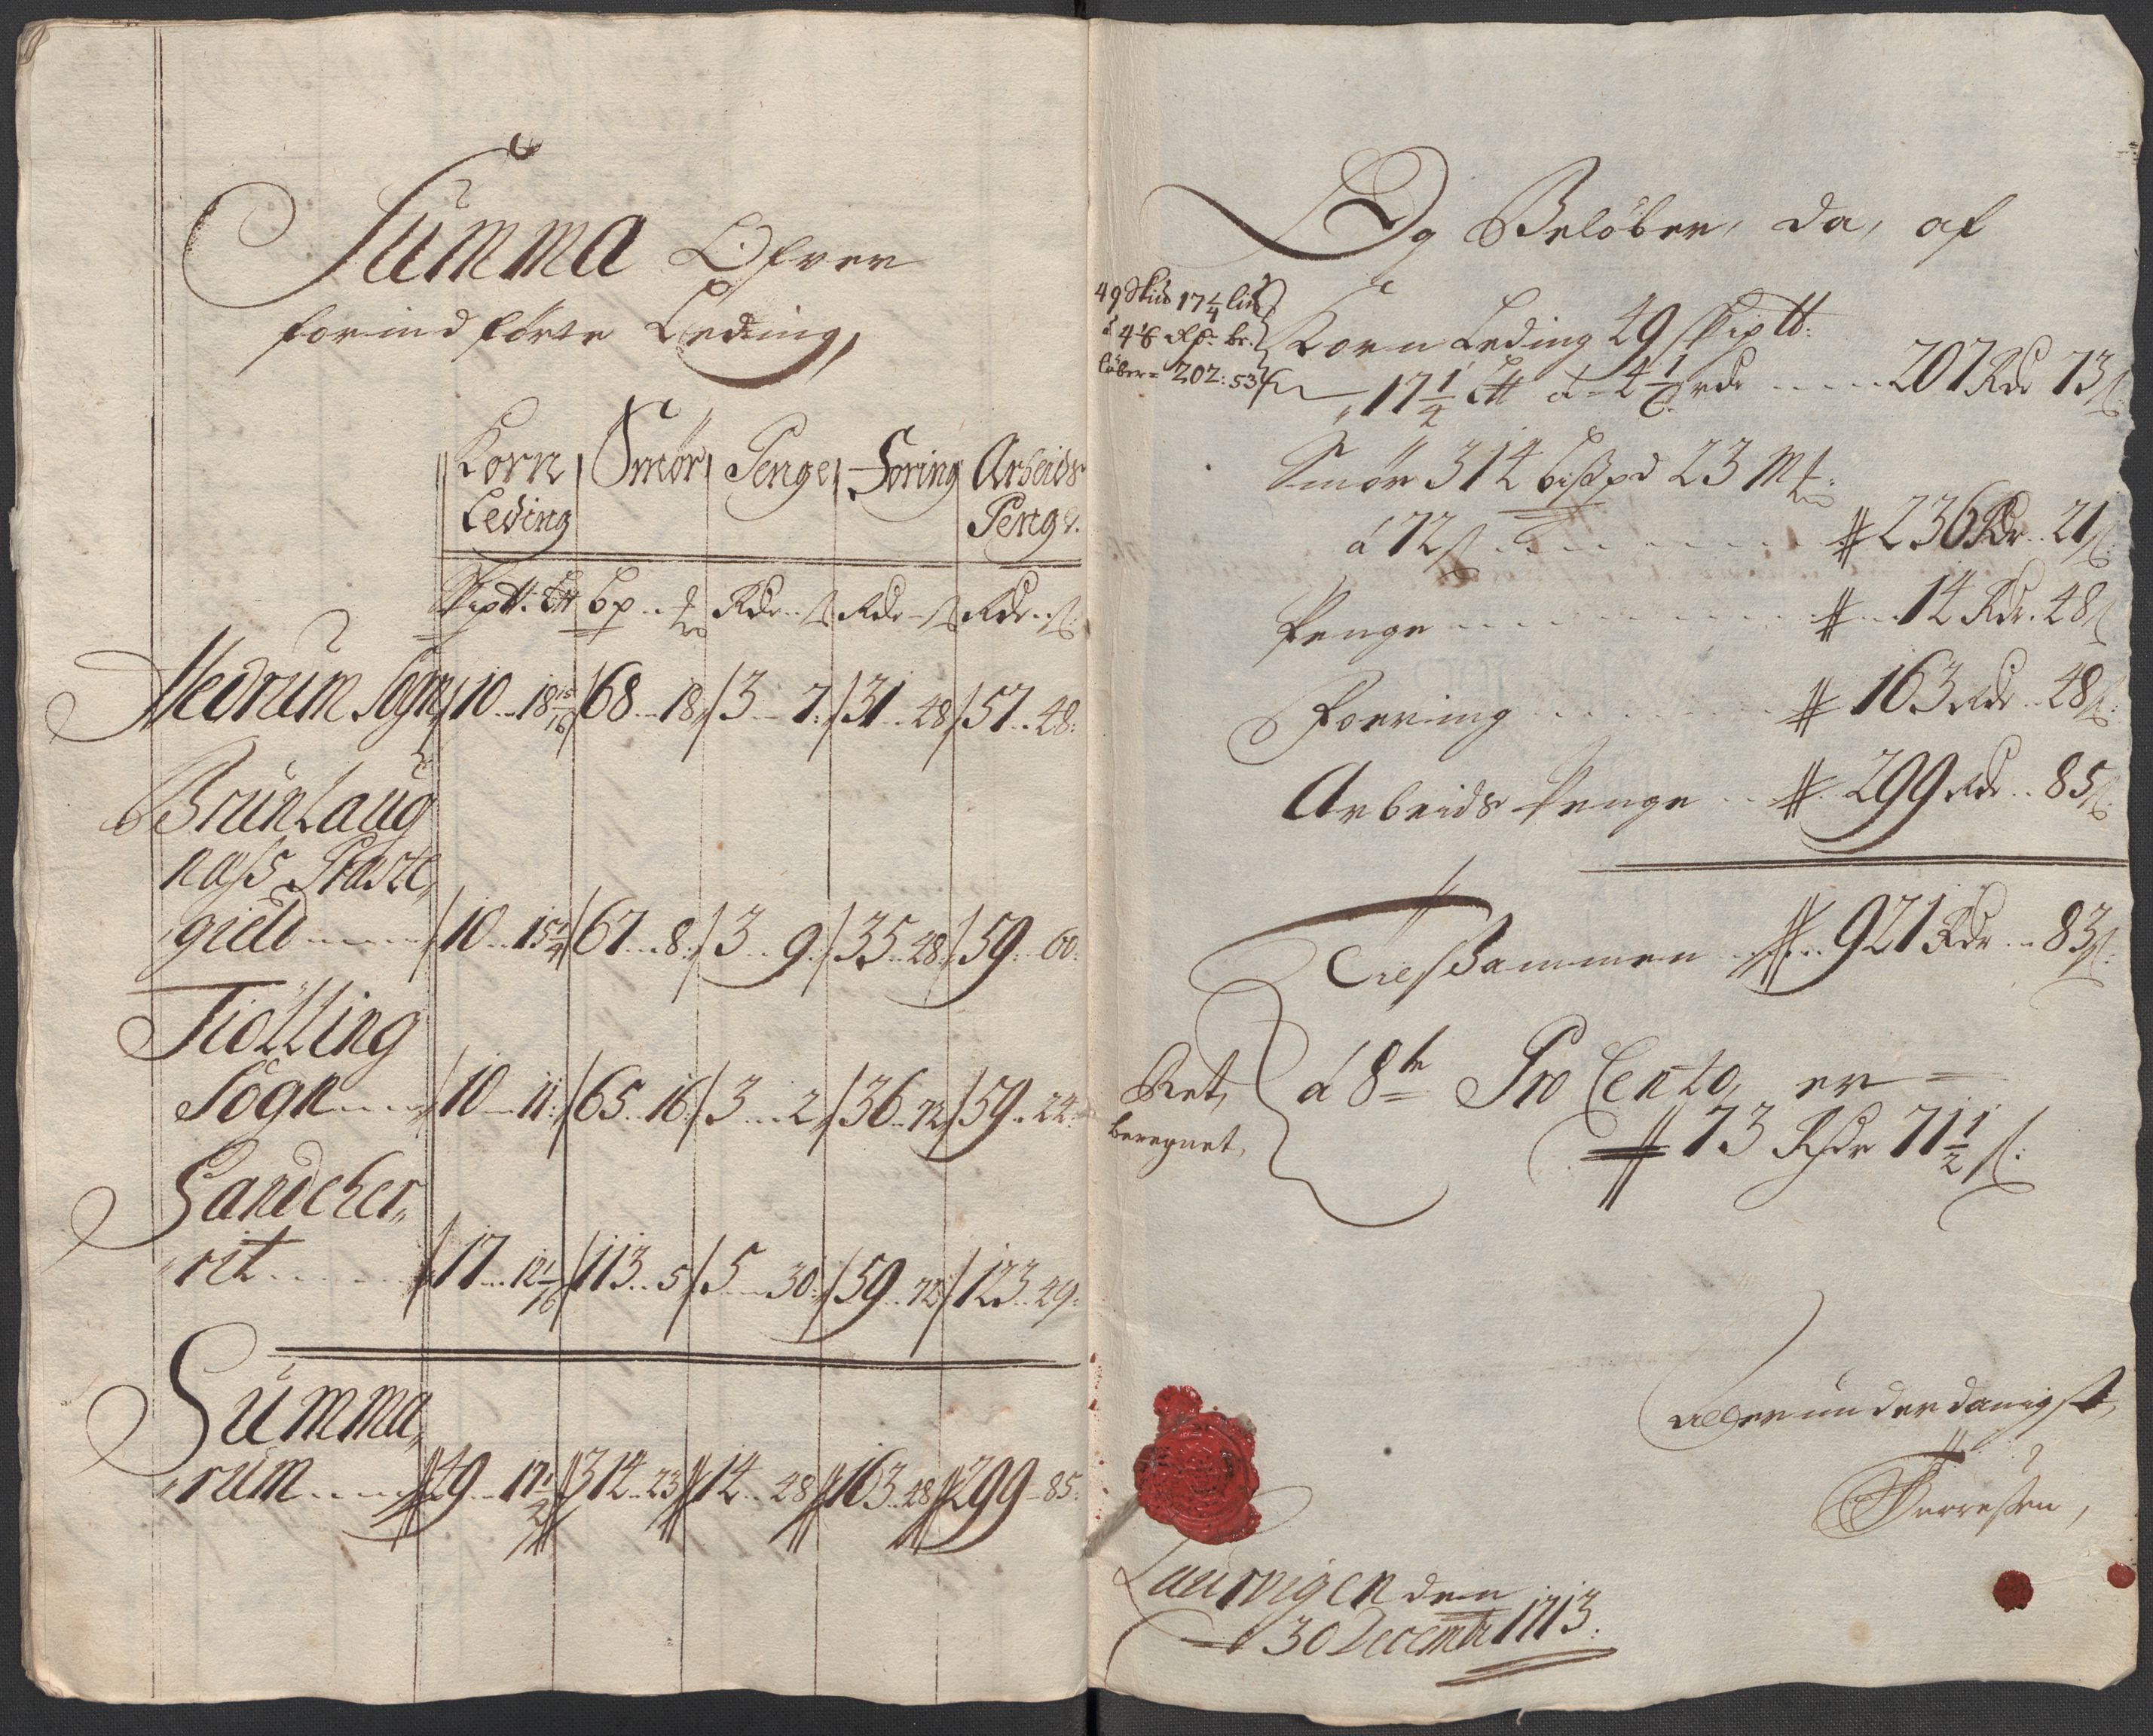 Summa Ofver
forindførte Leding,
Korn Leding | Smør | Penge | Foring | Arbeids Penge.
Skiptt. Ltt | bp .. | Rdr .. s | Rdr - s | Rdr .. s
Hedrum Sogn 10 .. 18 15/16 68 .. 18 3 .. 7 31 .. 48 57 .. 48
Brunlaug
næss Præste
gield 10 .. 15 67 .. 8 3 .. 9 35 .. 48 59 .. 60
Tiølling
Sogn 10 .. 11 65 .. 16 3 .. 2 36 .. 72 59 .. 24
Sandeher
rit 17 .. 12 1/16 113 .. 5 5 .. 30 59 .. 72 123 .. 49
Summa
rum 49 .. 17 314 .. 23 14 .. 48 163 .. 48 299 .. 85
Og Beløber, da, af
49 Skid 17 1/4 lid
á 4 1/6 Rd. be-
løber = 202 : 53
Korn Leding 49 skiptt.
17 1/4 Ltt á 4 1/6 rdr .... 207 Rdr 73 s
Smør 314 bisspd 23 Mk.
á 72 s .... 236 Rdr .. 21 s
Penge .... 14 Rdr. 48 s
Foering .... 163 Rdr .. 48 s
Arbeids Penge .. 299 Rdr .. 85 s
Tilsammen .. 921 Rdr .. 83 s
Ret,
beregnet,
á 8te Pro Cento, er
73 Rdr 71 1/2 s.
Allerunderdanigst,
Laurvigen den
30 Decembr 1713.